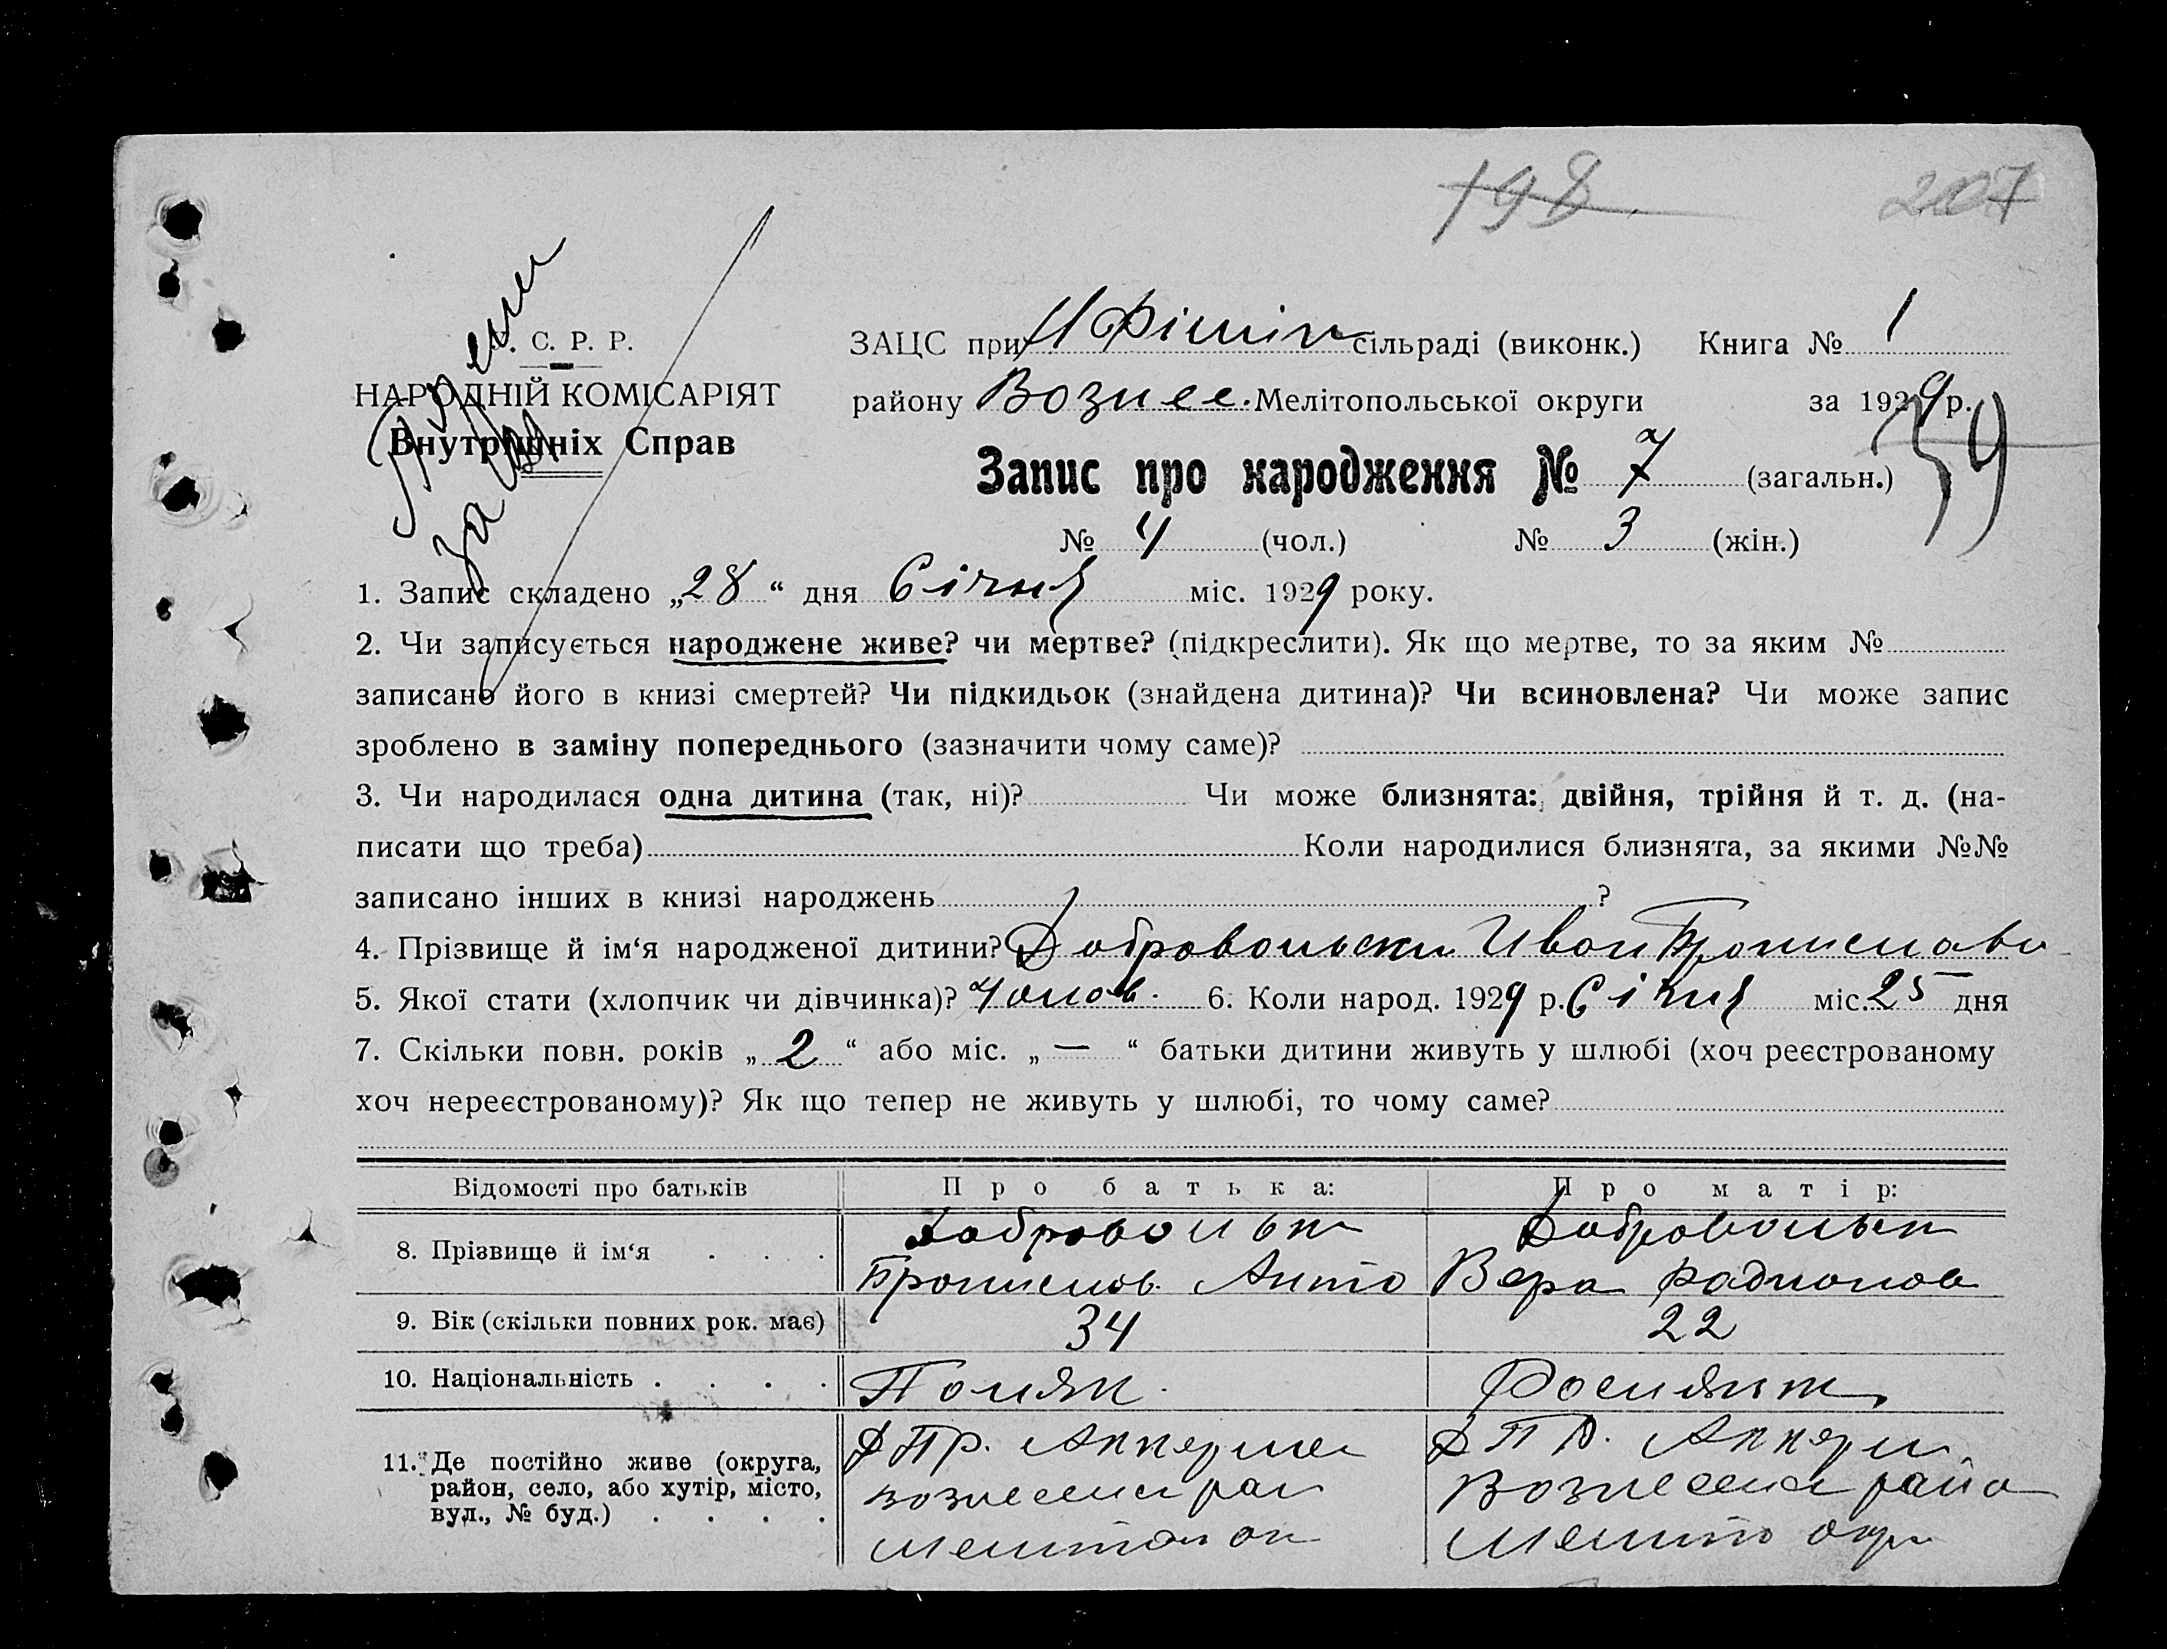 198
207
С. Р. Р.
НАРОДНІЙ КОМІСАРІЯТ
Внутрішніх Справ
ЗАЦС при сільраді (виконк.) Книга № 1
району Вознес. Мелітопольської округи за 1929 р.
39
Запис про народження № 7 (загальн.)
№ 4 (чол.) № 3 (жін.)
1. Запис складено „28“ дня Січня міс. 1929 року.
2. Чи записується народжене живе? чи мертве? (підкреслити). Як що мертве, то за яким №
записано його в книзі смертей? Чи підкидьок (знайдена дитина)? Чи всиновлена? Чи може запис
зроблено в заміну попереднього (зазначити чому саме)?
3. Чи народилася одна дитина (так, ні)? Чи може близнята: двійня, трійня й т. д. (на-
писати що треба) Коли народилися близнята, за якими №№
записано інших в книзі народжень ?
4. Прізвище й ім‘я народженої дитини? Добровольски Иван Брониславо
5. Якої стати (хлопчик чи дівчинка)? Чолов. 6. Коли народ. 1929 р. Січня міс. 25 дня
7. Скільки повн. років „2“ або міс. „—“ батьки дитини живуть у шлюбі (хоч реєстрованому
хоч нереєстрованому)? Як що тепер не живуть у шлюбі, то чому саме?
Відомості про батьків Про батька: Про матір:
8. Прізвище й ім‘я . . . Добровольск Бронислов. Анто Добровольск Вера Радионов
9. Вік (скільки повних рок. має) 34 22
10. Національність . . . . Поляк. Росиянк
11. Де постійно живе (округа, район, село, або хутір, місто, вул., № буд.) . . . . Вознесенс рай Мелітоп ок Вознесенс райо Меліто окр